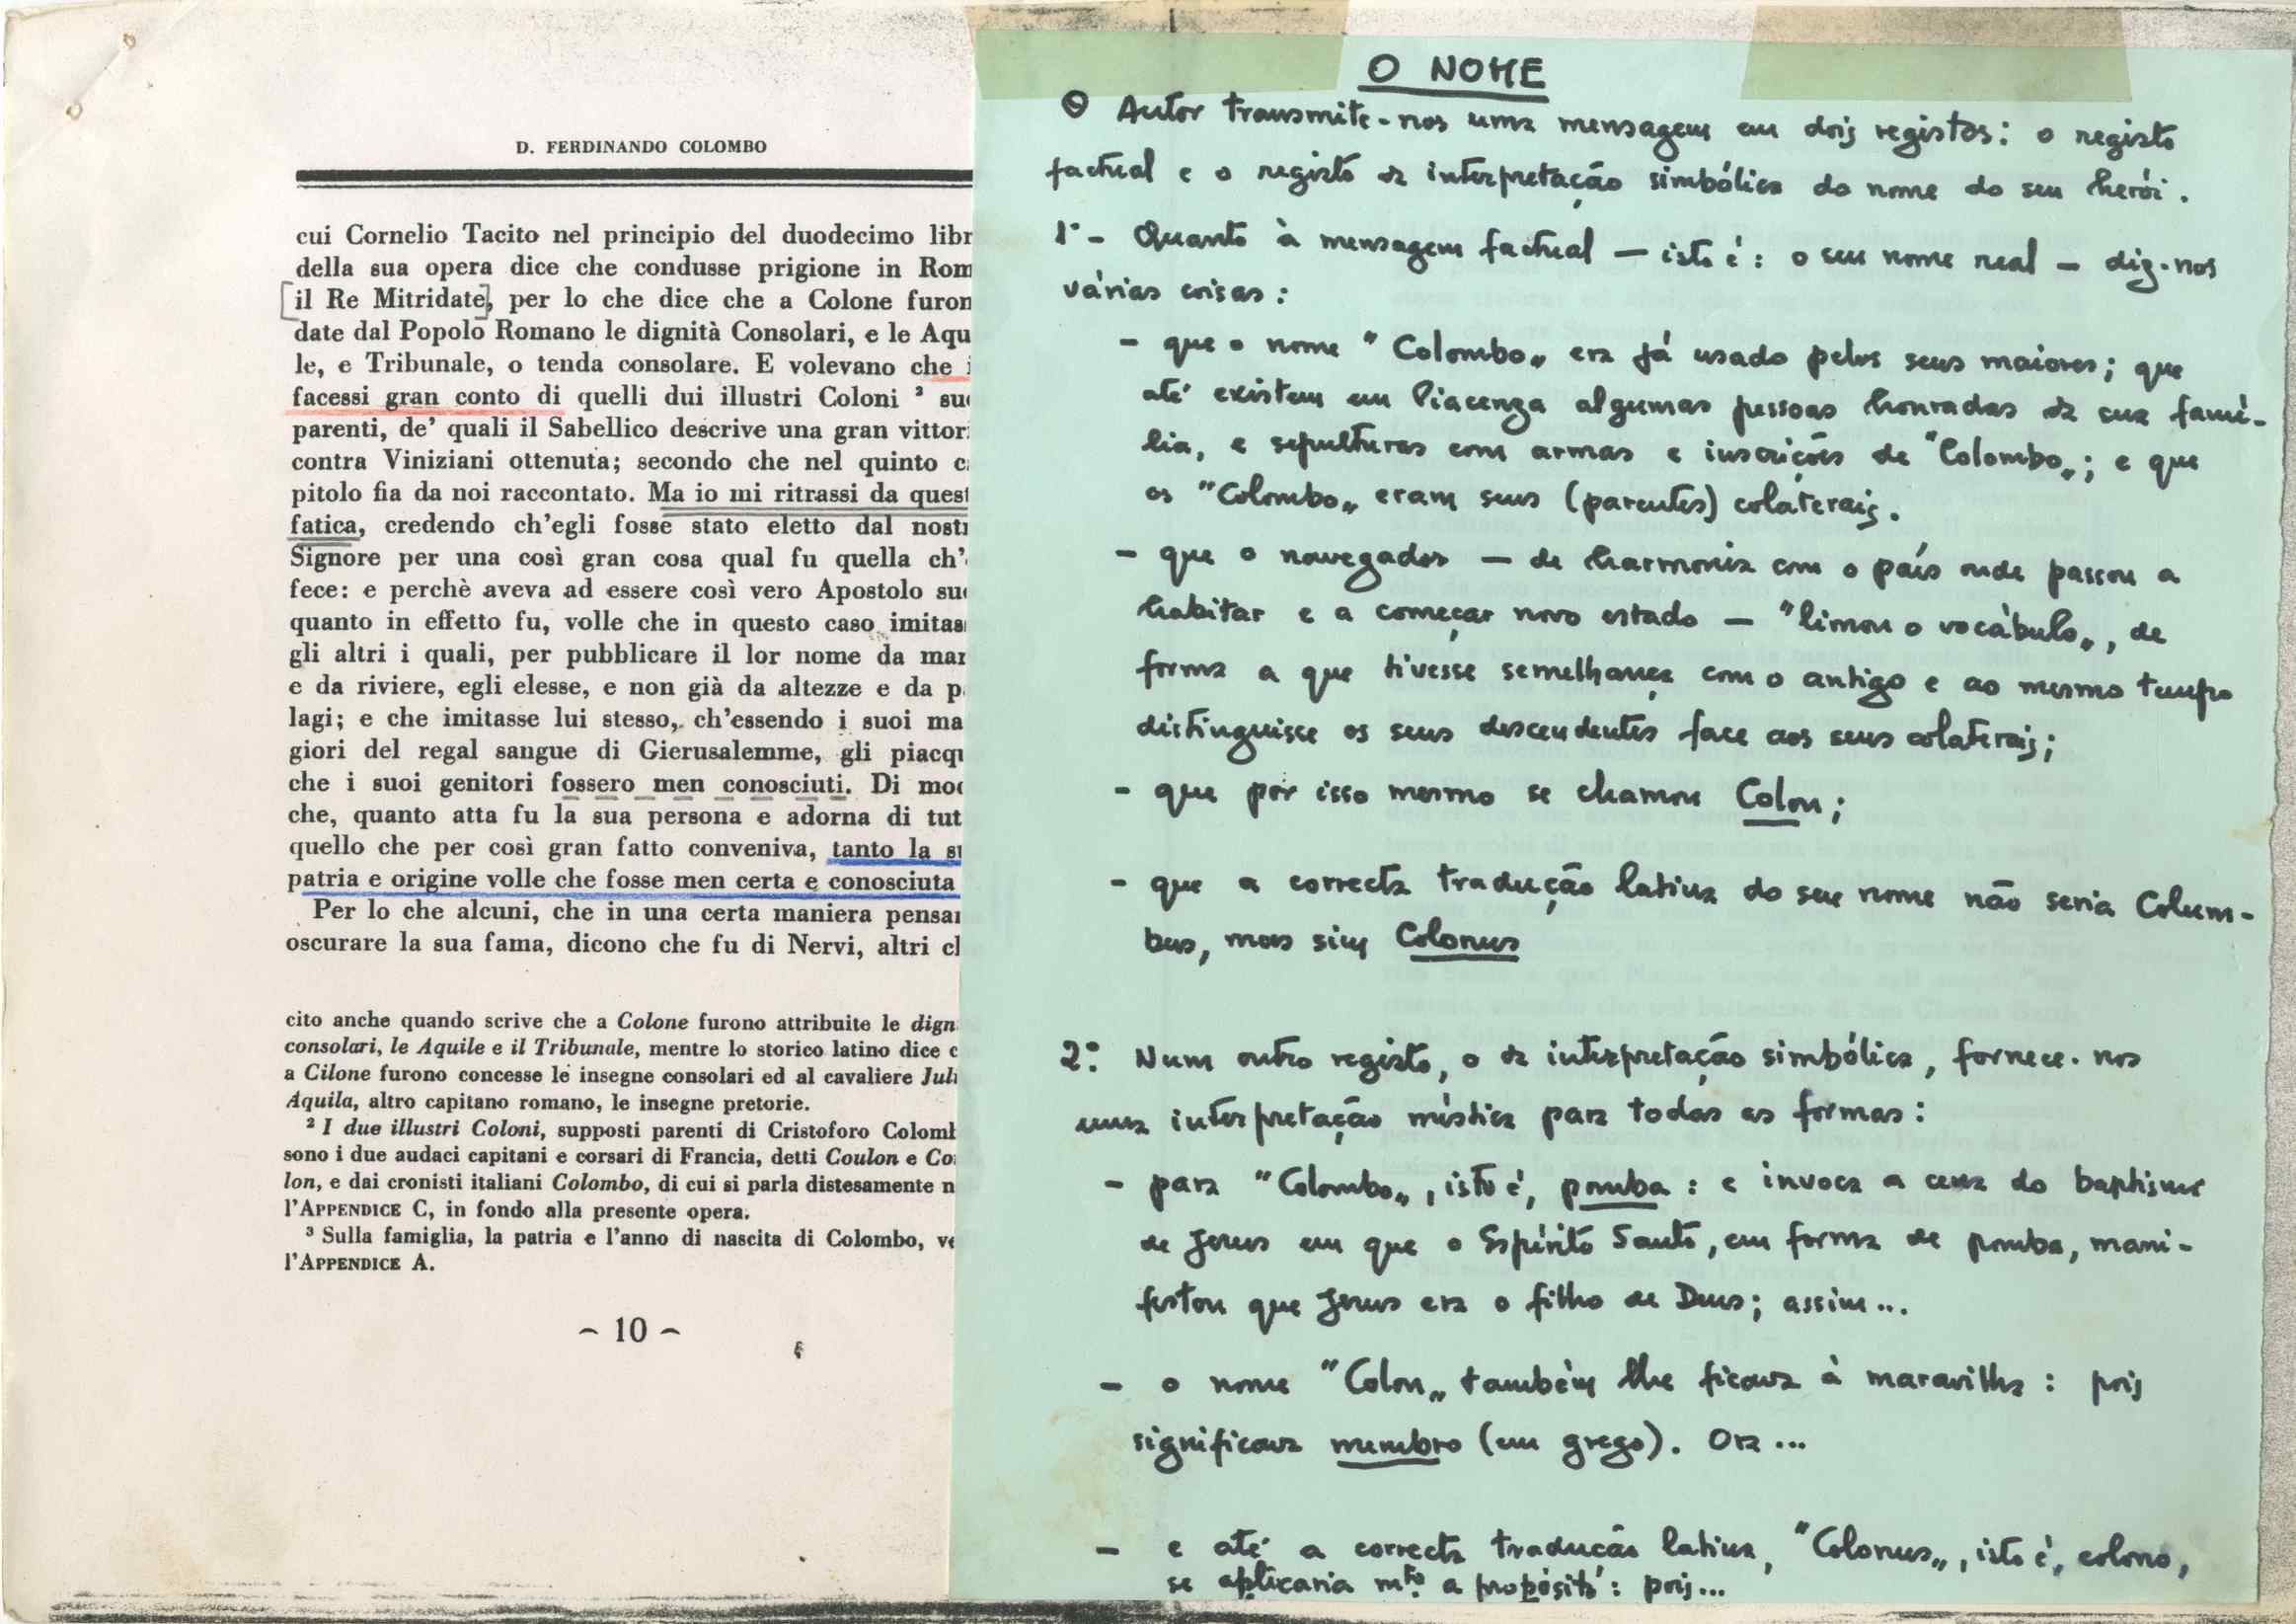 D. FERDINANDO COLOMBO
cui Cornelio Tacito nel principio del duodecimo libr
della sua opera dice che condusse prigione in Rom
[il Re Mitridate], per lo che dice che a Colone furon
date dal Popolo Romano le dignità Consolari, e le Aqu
le, e Tribunale, o tenda consolare. E volevano che i
facessi gran conto di quelli dui illustri Coloni ² suo
parenti, de' quali il Sabellico descrive una gran vittor
contra Viniziani ottenuta; secondo che nel quinto c
pitolo fia da noi raccontato. Ma io mi ritrassi da quest
fatica, credendo ch'egli fosse stato eletto dal nostr
Signore per una così gran cosa qual fu quella ch'
fece: e perchè aveva ad essere così vero Apostolo suo
quanto in effetto fu, volle che in questo caso imitas
gli altri i quali, per pubblicare il lor nome da mar
e da riviere, egli elesse, e non già da altezze e da p
lagi; e che imitasse lui stesso, ch'essendo i suoi ma
giori del regal sangue di Gierusalemme, gli piacqu
che i suoi genitori fossero men conosciuti. Di moo
che, quanto atta fu la sua persona e adorna di tut
quello che per così gran fatto conveniva, tanto la su
patria e origine volle che fosse men certa e conosciuta
Per lo che alcuni, che in una certa maniera pensan
oscurare la sua fama, dicono che fu di Nervi, altri cl
cito anche quando scrive che a Colone furono attribuite le dign
consolari, le Aquile e il Tribunale, mentre lo storico latino dice c
a Cilone furono concesse le insegne consolari ed al cavaliere Juli
Aquila, altro capitano romano, le insegne pretorie.
² I due illustri Coloni, supposti parenti di Cristoforo Colomb
sono i due audaci capitani e corsari di Francia, detti Coulon e Co
lon, e dai cronisti italiani Colombo, di cui si parla distesamente n
l'APPENDICE C, in fondo alla presente opera.
³ Sulla famiglia, la patria e l'anno di nascita di Colombo, ve
l'APPENDICE A.
- 10 -
O NOME
O Autor transmite-nos uma mensagem em dois registos: o registo
factual e o registo da interpretação simbólica do nome do seu herói.
1º - Quanto à mensagem factual — isto é: o seu nome real — diz-nos
várias coisas:
- que o nome "Colombo" era já usado pelos seus maiores; que
até existem em Piacenza algumas pessoas honradas da sua famí-
lia, e sepulturas com armas e inscrições de "Colombo"; e que
os "Colombo" eram seus (parentes) colaterais.
- que o navegador — de harmonia com o país onde passou a
habitar e a começar novo estado — "limou o vocábulo", de
forma a que tivesse semelhança com o antigo e ao mesmo tempo
distinguisse os seus descendentes face aos seus colaterais;
- que por isso mesmo se chamou Colon;
- que a correcta tradução latina do seu nome não seria Colum-
bus, mas sim Colonus
2º Num outro registo, o da interpretação simbólica, fornece-nos
uma interpretação mística para todas as formas:
- para "Colombo", isto é, pomba: e invoca a cena do baptismo
de Jesus em que o Espírito Santo, em forma de pomba, mani-
festou que Jesus era o filho de Deus; assim...
- o nome "Colon" também lhe ficava à maravilha: pois
significava membro (em grego). Ora...
- e até a correcta tradução latina, "Colonus", isto é, colono,
se aplicaria mto a propósito: pois...